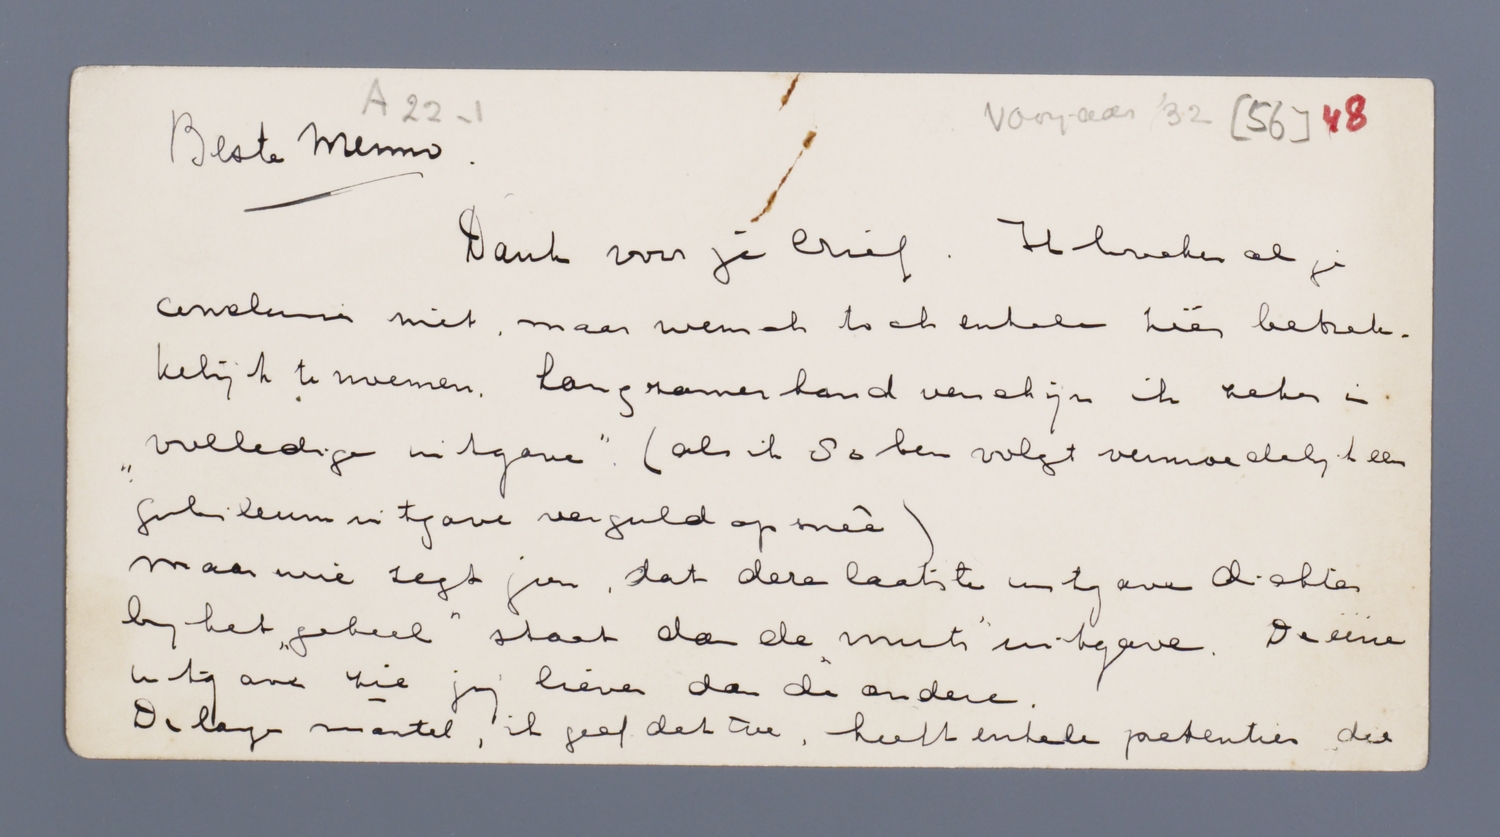 A 22-1
Voorjaar '32 [56] 48
Beste Menno.
Dank voor je brief. Ik al je
conclusie niet, maar wensch toch enkele betrek-
kelijk te noemen. Langzamerhand verschijn ik zeker in
„volledige uitgave". (als ik 80 ben volgt vermoedelijk een
jubileumuitgave verguld op sneê)
maar wie zegt jou, dat deze laatste uitgave dichter
bij het „geheel" staat dan de „muts" uitgave. De eene
uitgave zie jij liever dan de andere.
De lange mantel, ik geef dat toe, heeft enkele pretenties die